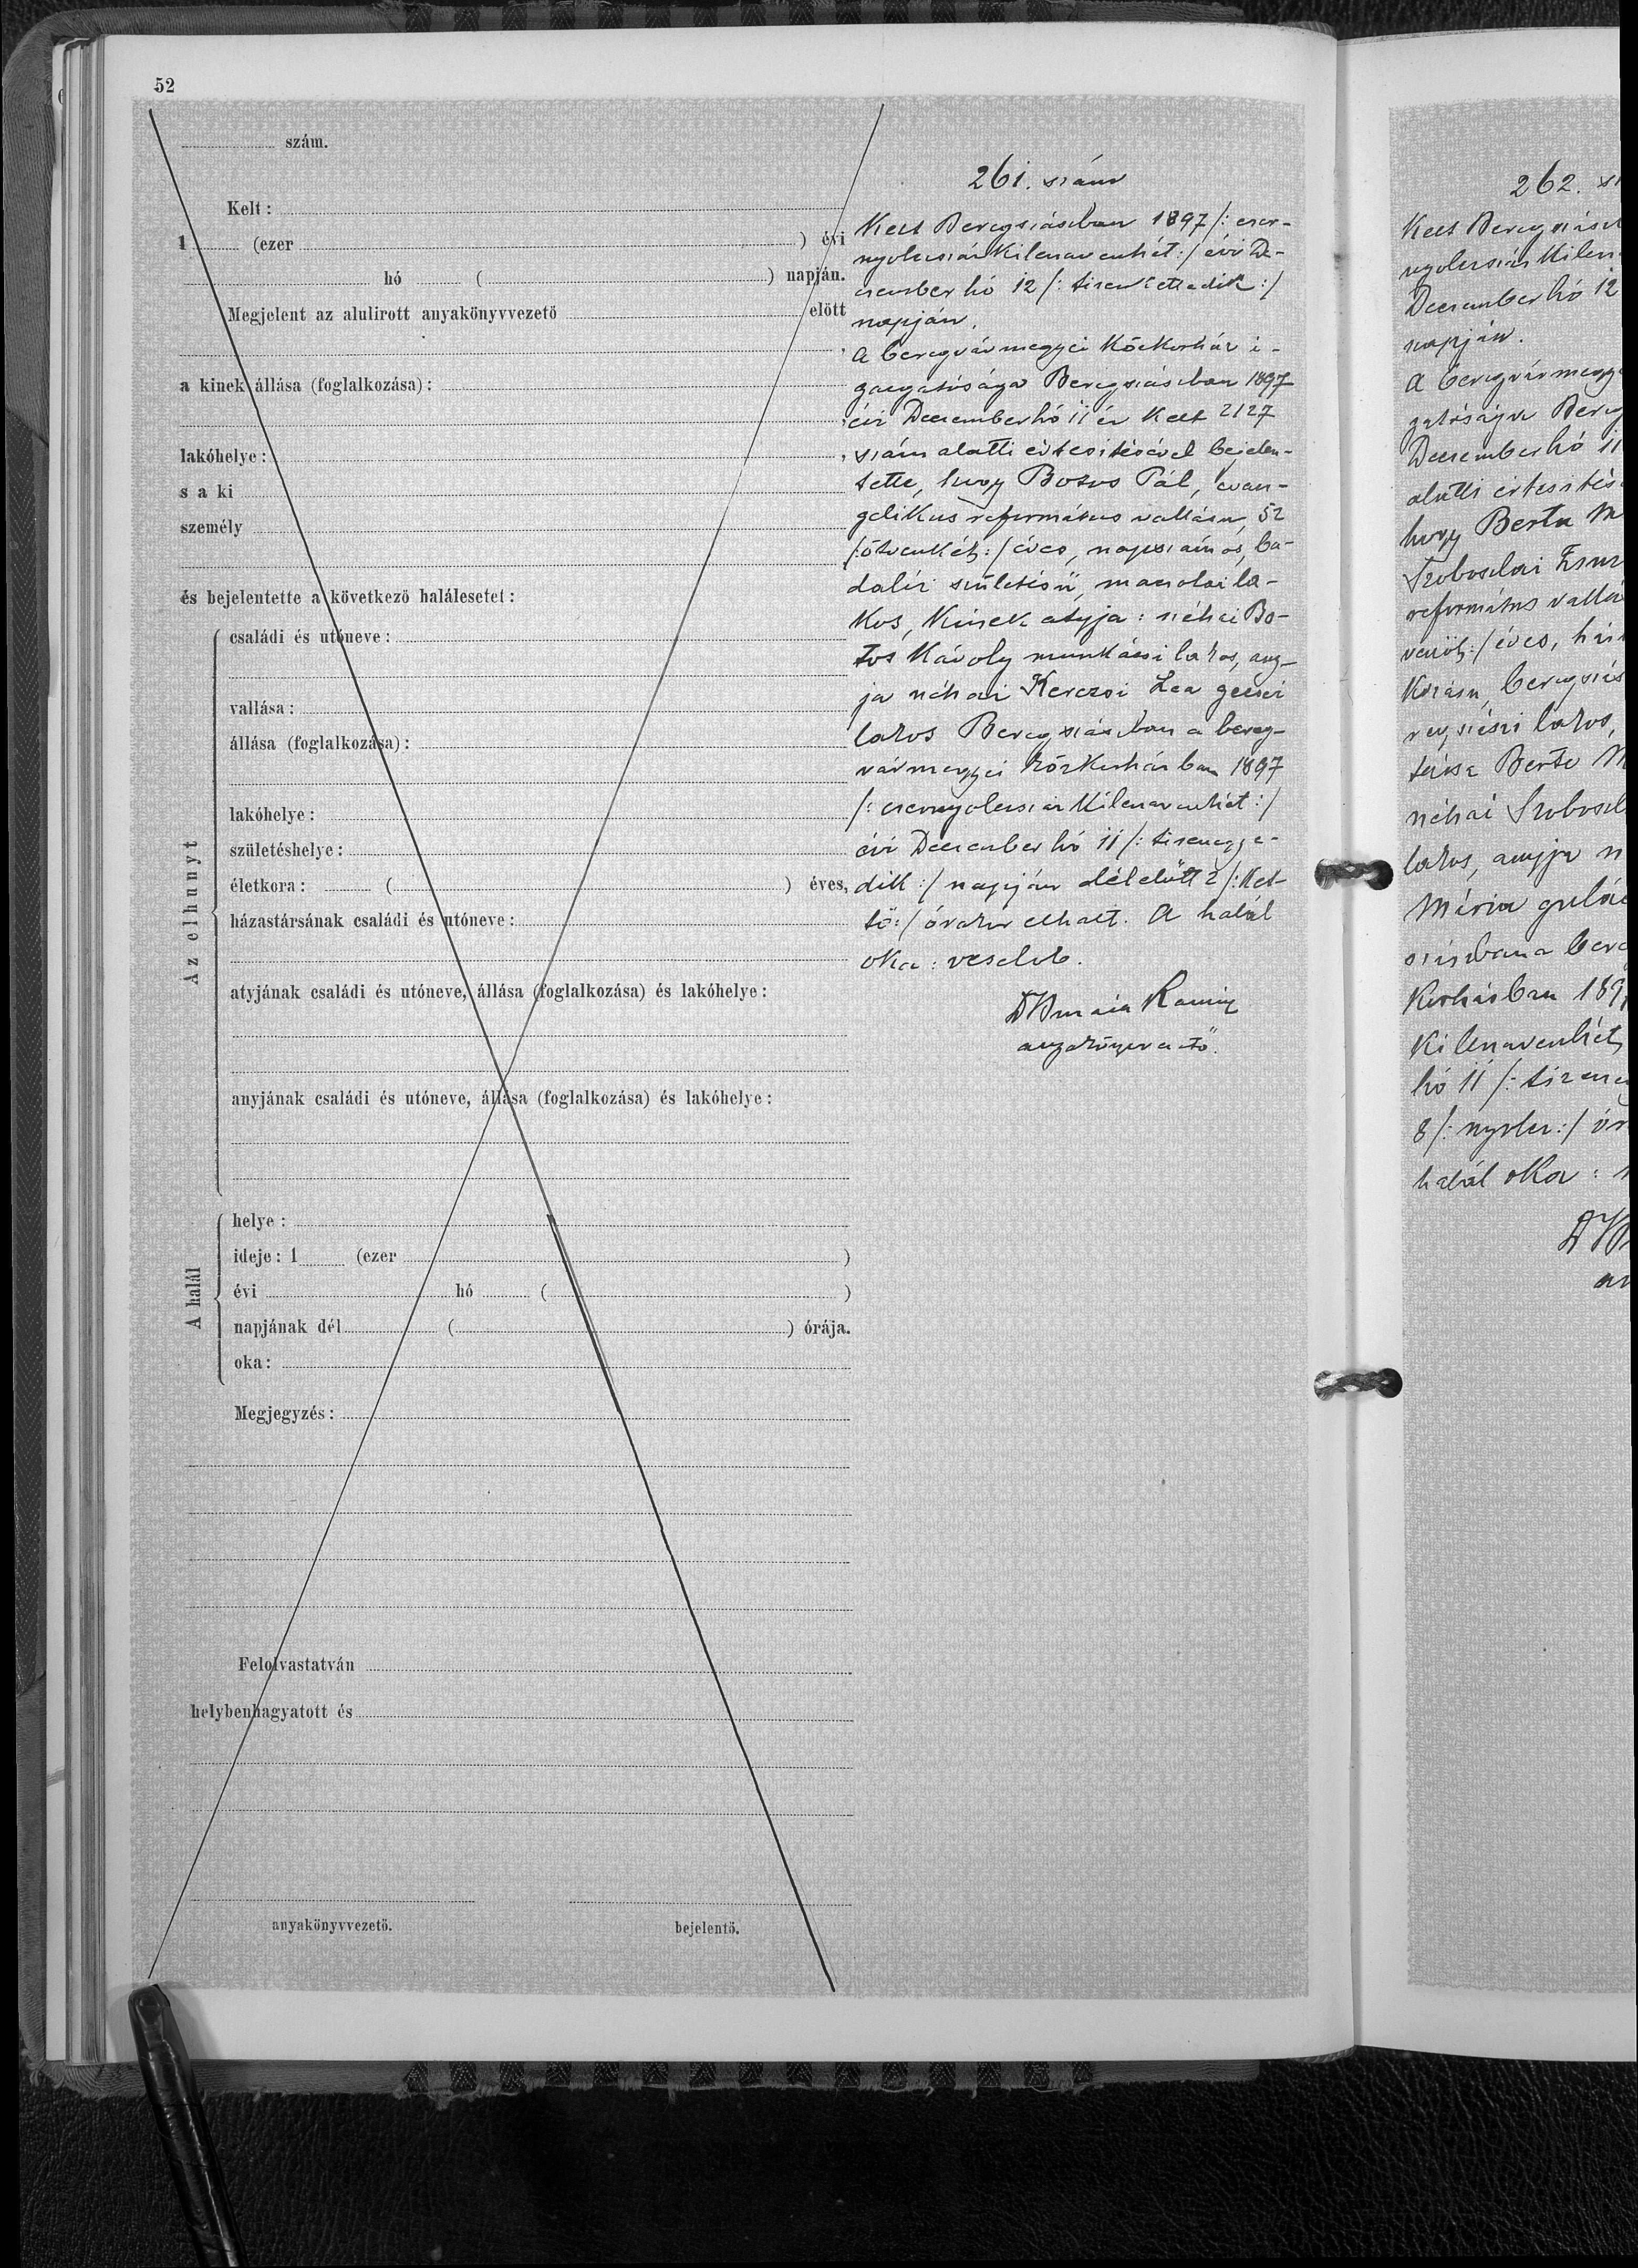 52
szám.
Kelt:
1 (ezer ) évi
hó ( ) napján.
Megjelent az alulirott anyakönyvvezető előtt
a kinek állása (foglalkozása):
lakóhelye:
s a ki
személy
és bejelentette a következő halálesetet:
Az elhunyt
családi és utóneve:
vallása:
állása (foglalkozása):
lakóhelye:
születéshelye:
életkora: ( ) éves,
házastársának családi és utóneve:
atyjának családi és utóneve, állása (foglalkozása) és lakóhelye:
anyjának családi és utóneve, állása (foglalkozása) és lakóhelye:
A halál
helye:
ideje: 1 (ezer )
évi hó ( )
napjának dél ( ) órája.
oka:
Megjegyzés:
Felolvastatván
helybenhagyatott és
anyakönyvvezető. bejelentő.
261. szám
Kelt Beregszászban 1897 /: ezer-
nyolcszázkilencvenhét :/ évi De-
cember hó 12 /: tizenkettedik :/
napján.
A beregvármegyei közkórház i-
gazgatósága Beregszászban 1897
évi December hó 11 én kelt 2127
szám alatti értesitésével bejelen-
tette, hogy Botos Pál, evan-
gelikus református vallásu, 52
/: ötvenkét :/ éves, napszámos, ba-
dalói születésü, la-
kos, kinek atyja: néhai Bo-
tos Károly munkácsi lakos, any-
ja néhai Kerezsi Lea gecsei
lakos Beregszászban a bereg-
vármegyei közkórházban 1897
/: ezernyolcszázkilencvenhét :/
évi December hó 11 /: tizenegye-
dik :/ napján délelőtt 2 /: ket-
tő :/ órakor elhalt. A halál
oka: veselob.
anyakönyvvezető.
262.
Kelt Beregszász
nyolcszázkilen
December hó 12
napján.
A beregvármegye
gatósága Bereg
December hó 11
alatti értesités
hogy Berta M
Szoboszlai
református vallás
éves, há
beregszás
lakos,
Berta M
néhai Szoboszl
lakos, anyja n
Mária
a bere
kórházban 189
kilencvenhét
hó 11 /: tizene
8 /: nyolc :/ ór
halál oka: